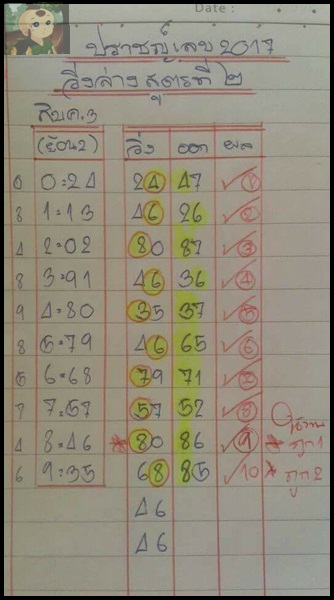 Date :
ปราชญ์เลข 2017
วิ่งล่าง สูตรที่ ๒
สิบ ค.3
(ย้อน2) วิ่ง ออก ผล
0 0=24 24 47 ✓ 1
8 1=13 46 26 ✓ 2
4 2=02 80 87 ✓ 3
8 3=91 46 36 ✓ 4
9 4=80 35 37 ✓ 5
8 5=79 46 65 ✓ 6
5 6=68 79 71 ✓ 7
7 7=57 57 52 ✓ 8
4 8=46 80 86 ✓ 9 ถูก1
6 9=35 68 85 ✓ 10 ถูก2
46
46